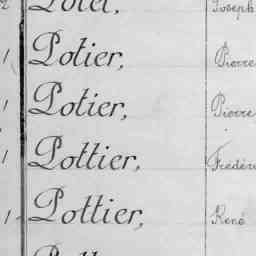 2 Potel, Joseph
1 Potier, Pierre
1 Potier, Pierre
1 Pottier, Frédéric
1 Pottier, René